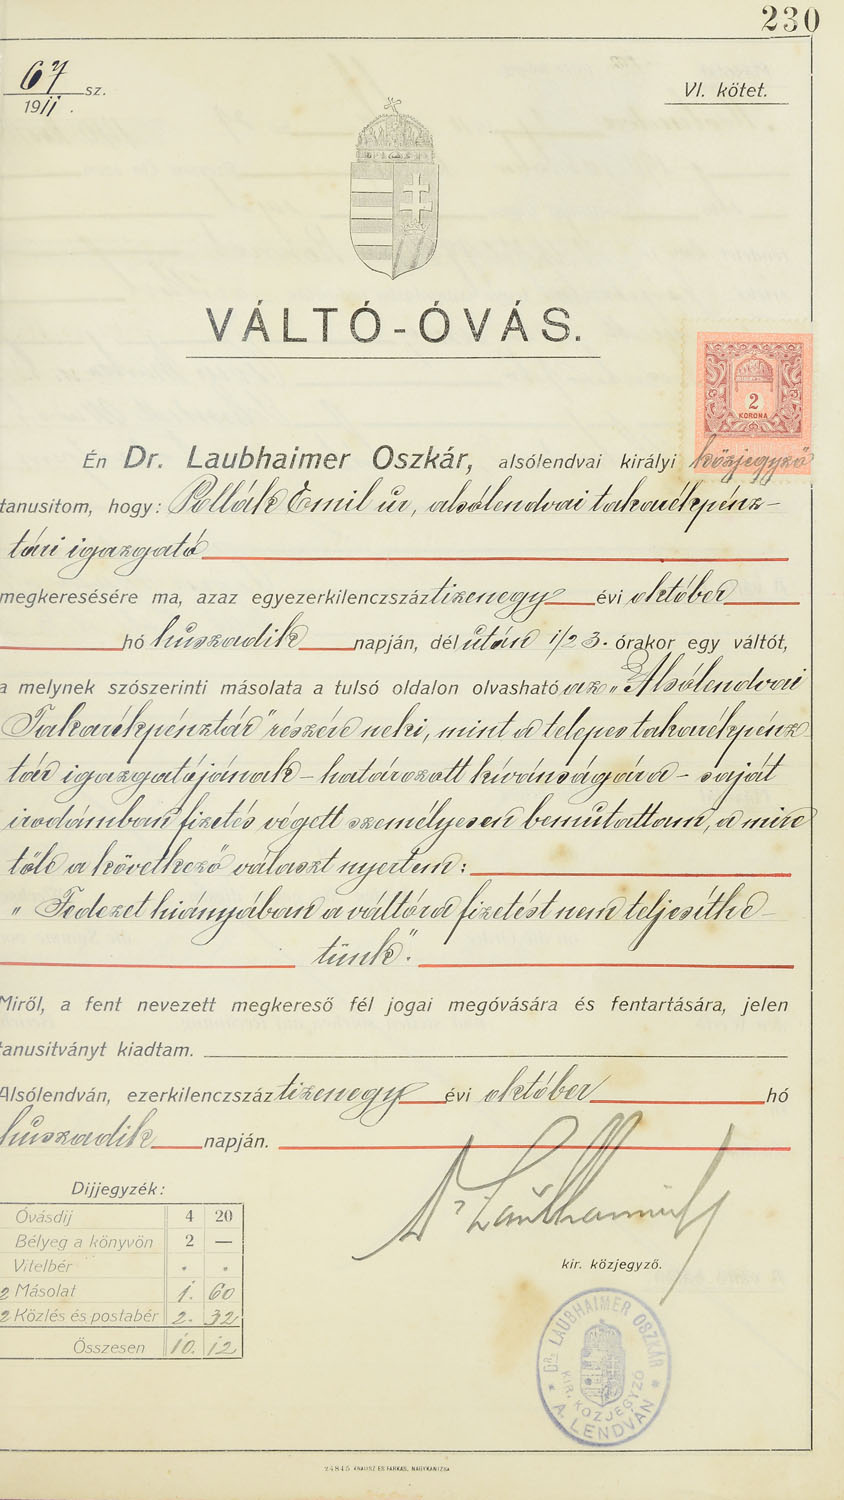 230
67 sz.
1911.
VI. kötet.
VÁLTÓ-ÓVÁS.
2
KORONA
Én Dr. Laubhaimer Oszkár, alsólendvai királyi közjegyző
tanusitom, hogy: Pollák Emil úr, alsólendvai takarékpénz-
tári igazgató
megkeresésére ma, azaz egyezerkilenczszáz tizenegy évi október
hó huszadik napján, dél után 1/2 3. órakor egy váltót,
a melynek szószerinti másolata a tulsó oldalon olvasható az „Alsólendvai
Takarékpénztár" részére neki, mint a telepes takarékpénz
tár igazgatójának – határozott kívánságára – saját
irodámban fizetés végett személyesen bemutattam, a mire
tőle a következő választ nyertem:
„Fedezet hiányában a váltóra fizetést nem teljesíthe-
tünk".
Miről, a fent nevezett megkereső fél jogai megóvására és fentartására, jelen
tanusitványt kiadtam.
Alsólendván, ezerkilenczszáz tizenegy évi október hó
huszadik napján.
Dijjegyzék:
Óvásdij 4 20
Bélyeg a könyvön 2 —
Vitelbér . .
2 Másolat 1. 60
2 Közlés és postabér 2. 32
Összesen 10. 12
Dr Laubhaimer
kir. közjegyző.
DR. LAUBHAIMER OSZKÁR
KIR. KÖZJEGYZŐ
* A. LENDVÁN *
24845 KRAUSZ ÉS FARKAS, NAGYKANIZSA